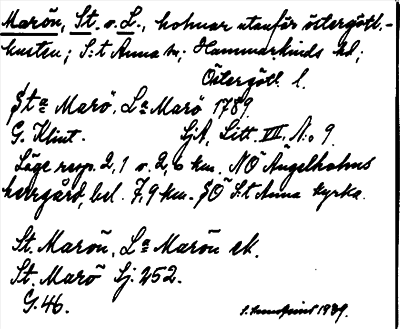 Marön, St. o. L., holmar utanför östergötl.-
kusten; S:t Anna sn; Hammarkinds hd;
Östergötl. l.
Sta Marö, La Marö 1789
G. Klint. SjA, Litt. VII, N:o 9.
Läge resp. 2,1 o. 2,6 km. NO Ängelholms
herrgård, bel. 7,9 km. SO S:t Anna kyrka.
St. Marön, La Marön ek.
St. Marö Sj. 252.
G. 46.
1939.